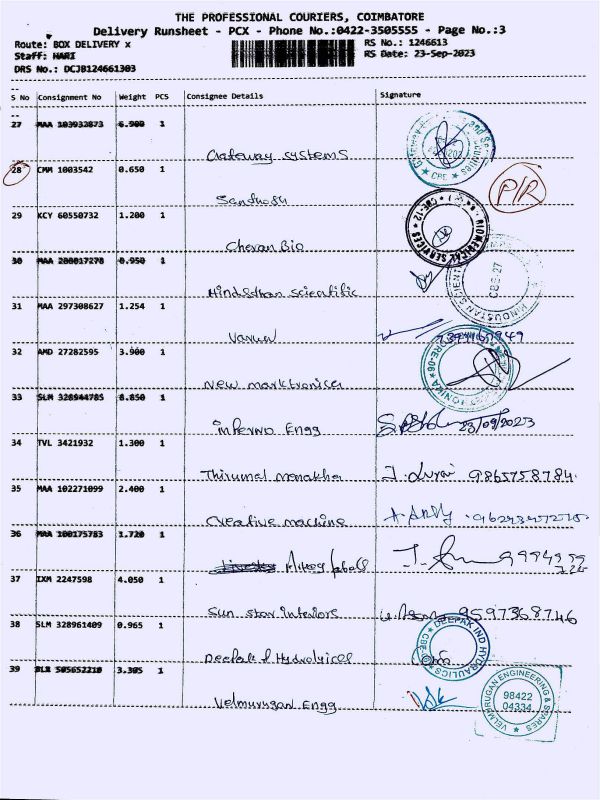 THE PROFESSIONAL COURIERS, COIMBATORE
Delivery Runsheet - PCX - Phone No.:0422-3505555 - Page No.:3
Route: BOX DELIVERY x
RS No.: 1246613
Staff: HARI
RS Date: 23-Sep-2023
DRS No.: DCJB124661303
S No Consignment No Weight PCS Consignee Details Signature
27 MAA 103932873 6.900 1
Gateway Systems
CBE
28 CMM 1003542 0.650 1
P/R
Santhosh
29 KCY 60550732 1.200 1
BIOMEDICAL SERVICES CBE-12
Cheran Bio
30 MAA 200017278 0.950 1
HINDUSTAN SCIENTIFIC CBE-27
Hindusthan Scientific
31 MAA 297308627 1.254 1
Varun
32 AMD 27282595 3.900 1
New marktronics
33 SLM 32894785 8.850 1
inferno Engg 23/09/2023
34 TVL 3421932 1.300 1
Thirumal 9865758784
35 MAA 102271099 2.400 1
Creative machine
36 MAA 100175783 1.720 1
37 IXM 2247598 4.050 1
Sun star interiors 9597368746
38 SLM 328961409 0.965 1
DEEPAK IND HYDRAULICS
Deepak Hydrolyices
39 BLR 505652210 3.305 1
VELMURUGAN ENGINEERING & SPARES
98422
04334
Velmurugan Engg